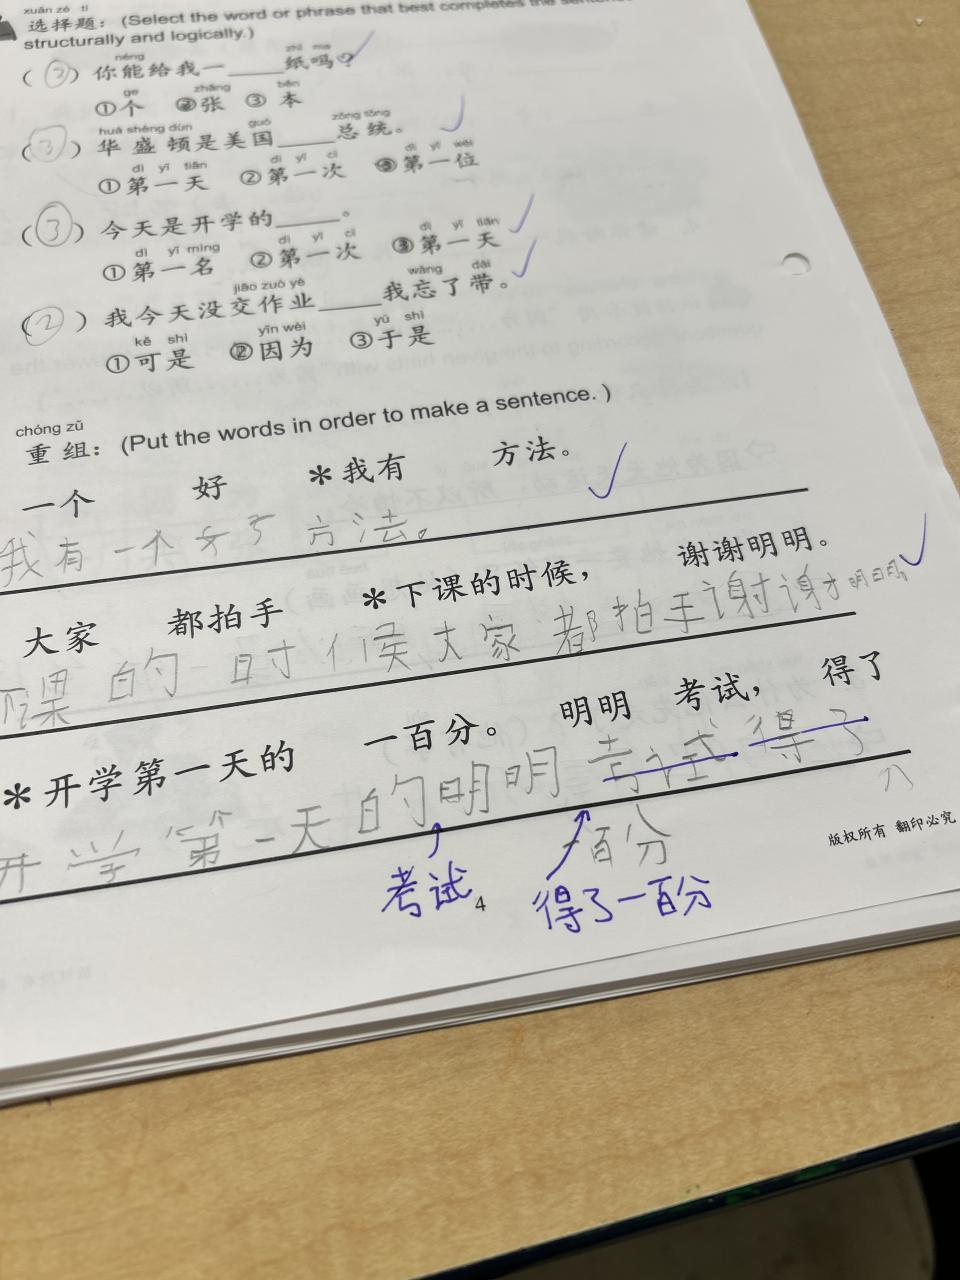 xuǎn zé tí
选择题：(Select the word or phrase that best completes the sentence
structurally and logically.)
néng zhǐ ma
( ② ) 你能给我一____纸吗？
ge zhāng běn
①个 ②张 ③本
huá shèng dùn guó zǒng tǒng
( 3 ) 华盛顿是美国____总统。
dì yī tiān dì yī cì dì yī wèi
①第一天 ②第一次 ③第一位
( ③ ) 今天是开学的____。
dì yī míng dì yī cì dì yī tiān
①第一名 ②第一次 ③第一天
jiāo zuò yè wàng dài
( ② ) 我今天没交作业____我忘了带。
kě shì yīn wèi yú shì
①可是 ②因为 ③于是
chóng zǔ
重组：(Put the words in order to make a sentence. )
一个 好 *我有 方法。
我有一个好方法。
大家 都拍手 *下课的时候， 谢谢明明。
下课的时候大家都拍手谢谢明明。
*开学第一天的 一百分。 明明 考试， 得了
开学第一天的明明考试得了
一百分
考试 得了一百分
4
版权所有 翻印必究